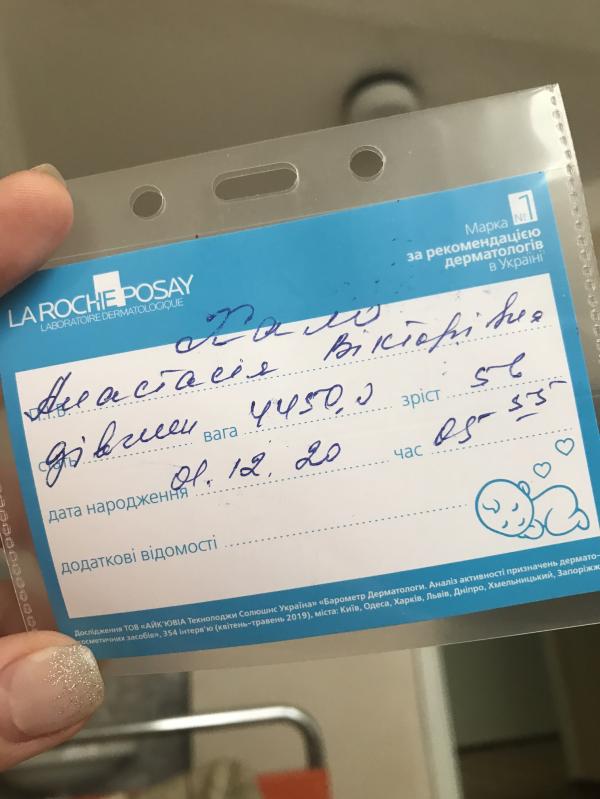 LA ROCHE POSAY
LABORATOIRE DERMATOLOGIQUE
Марка №1
за рекомендацією
дерматологів
в Україні
П.І.Б. Анастасія Вікторівна
стать вага 4450,0 зріст 56
дата народження 01.12.20 час 05 55
додаткові відомості
Дослідження ТОВ «АЙК'ЮВІА Технолоджи Солюшнс Україна» «Барометр Дерматологи. Аналіз активності призначень дермато-
косметичних засобів», 354 інтерв'ю (квітень–травень 2019), міста: Київ, Одеса, Харків, Львів, Дніпро, Хмельницький, Запоріжж